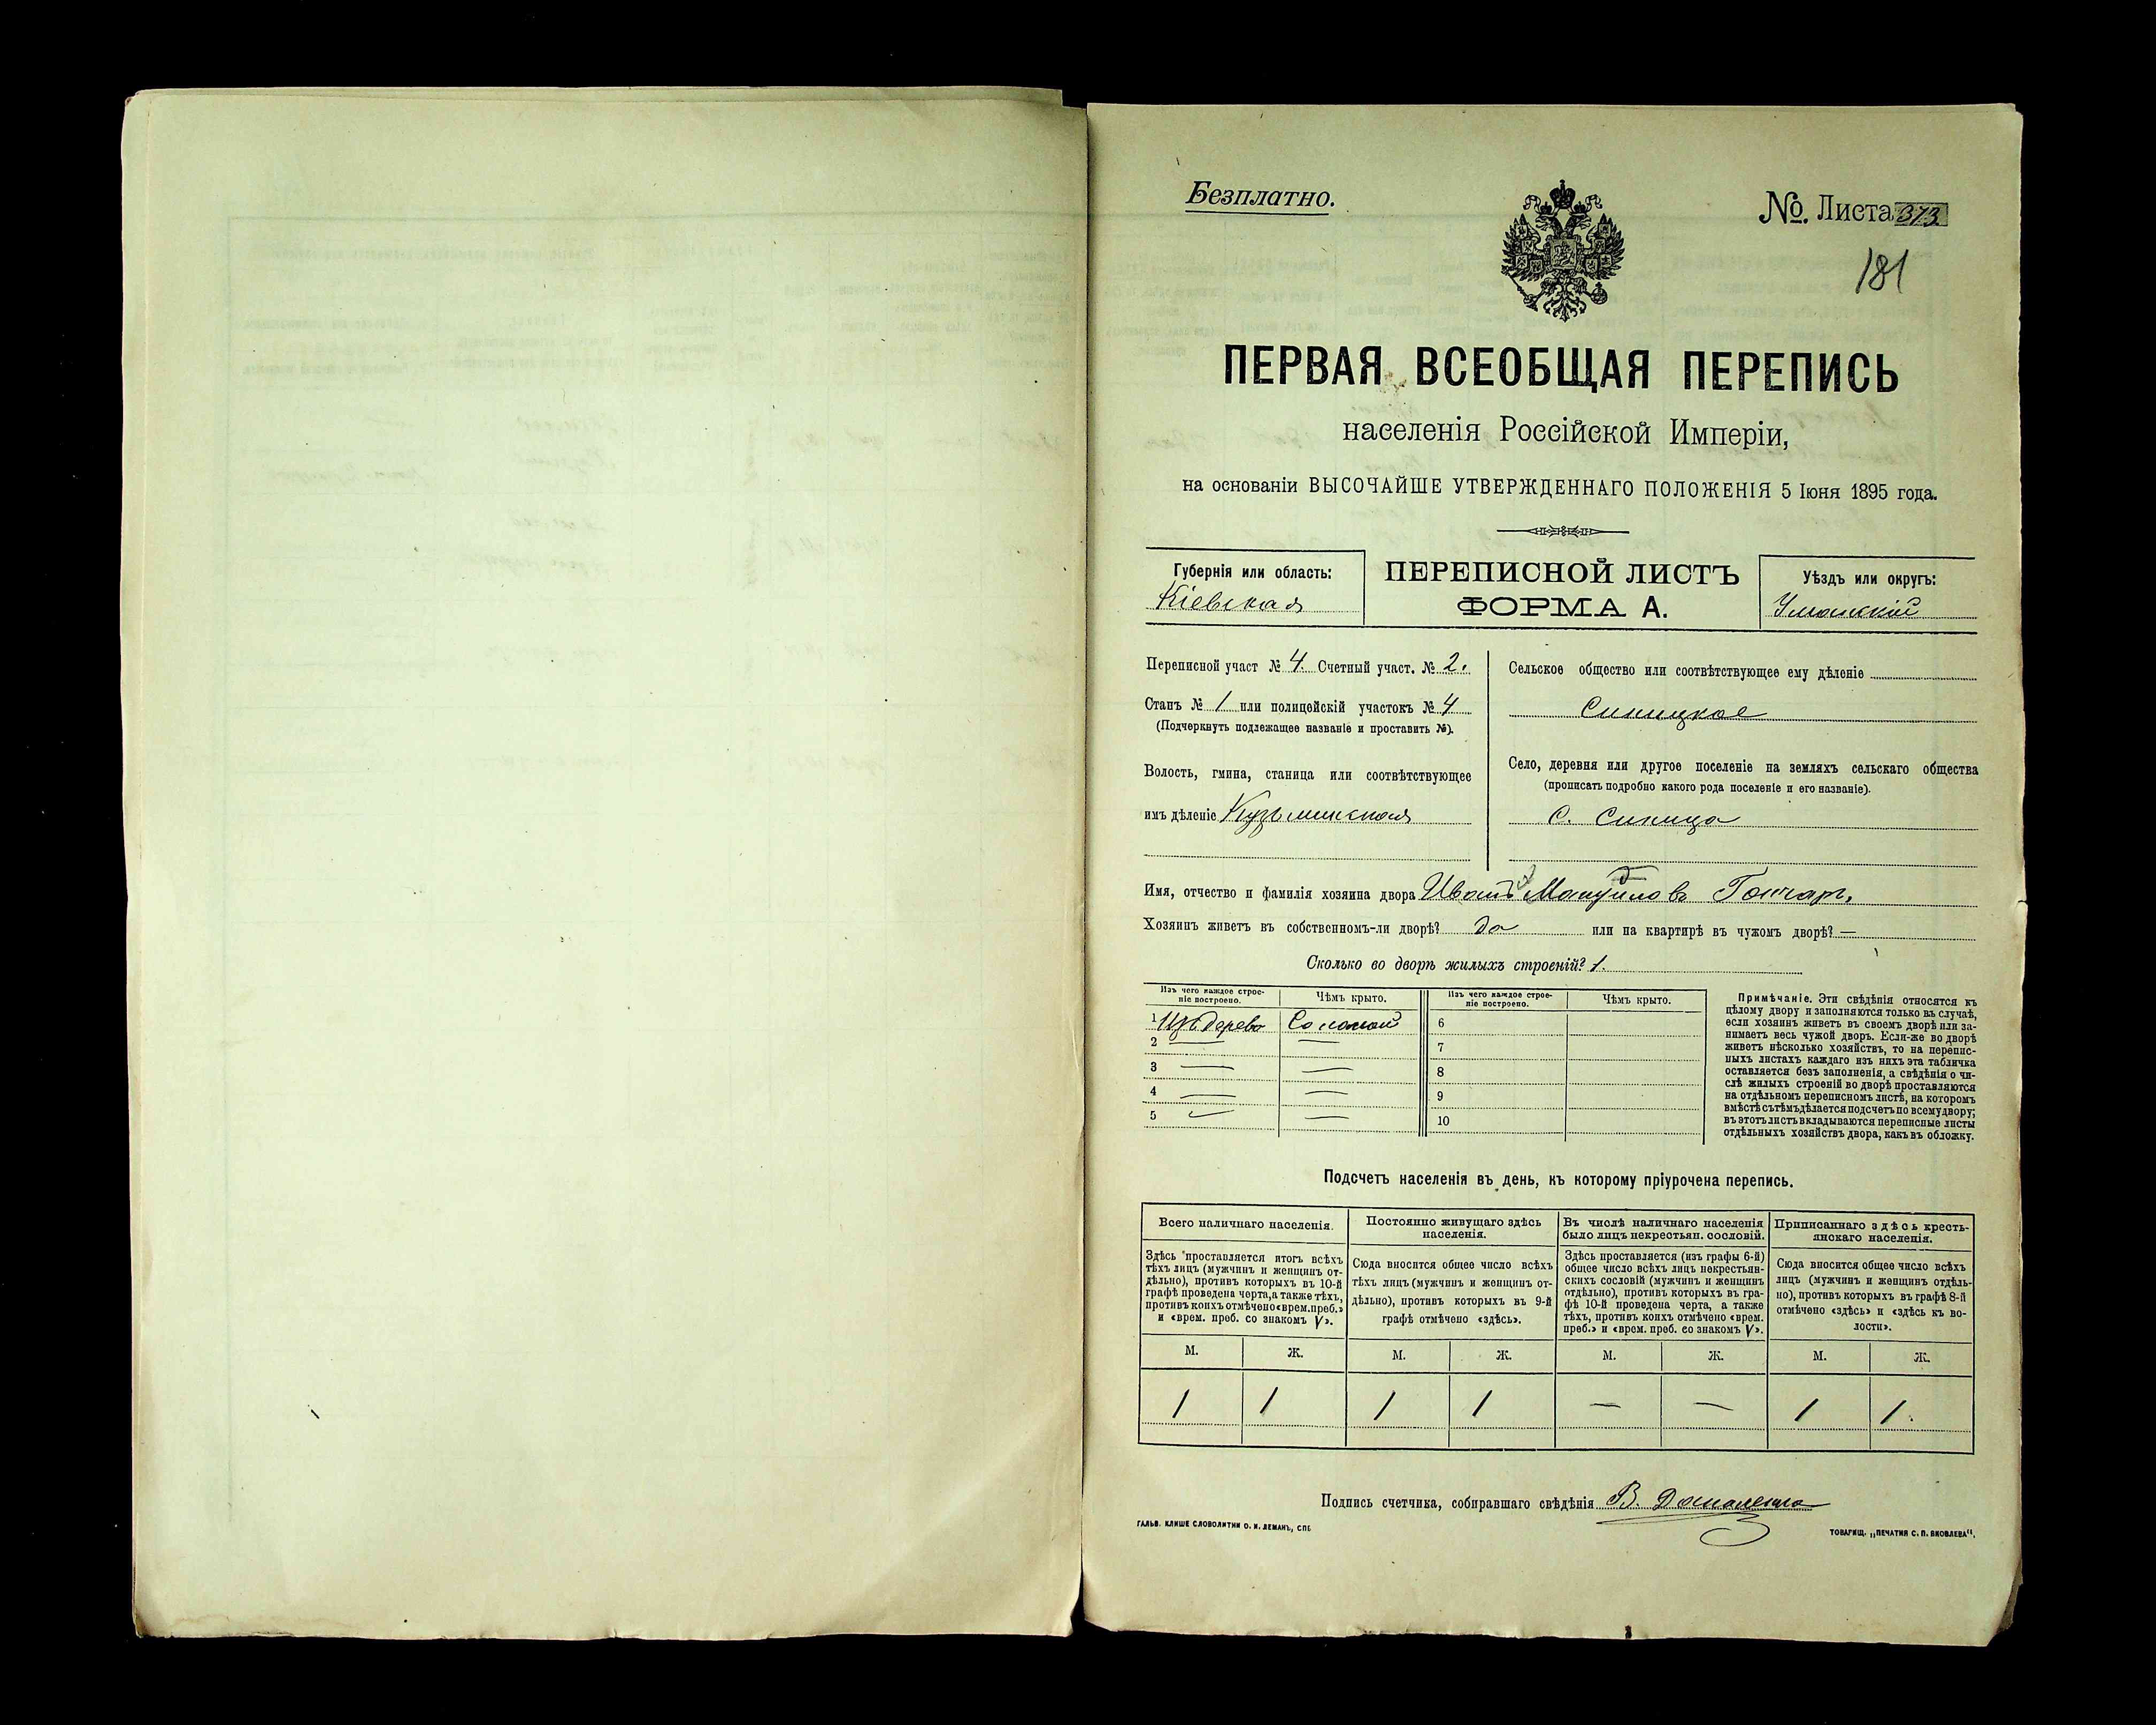 Безплатно.
№. Листа 373
181
ПЕРВАЯ ВСЕОБЩАЯ ПЕРЕПИСЬ
населенія Россійской Имперіи,
на основаніи ВЫСОЧАЙШЕ УТВЕРЖДЕННАГО ПОЛОЖЕНІЯ 5 Іюня 1895 года.
Губернія или область:
Кіевская
ПЕРЕПИСНОЙ ЛИСТЪ
ФОРМА А.
Уѣздъ или округъ:
Уманскій
Переписной участ № 4. Счетный участ. № 2.
Станъ № 1 или полицейскій участокъ № 4
(Подчеркнуть подлежащее названіе и проставить №).
Волость, гмина, станица или соотвѣтствующее
имъ дѣленіе Кузьминская
Сельское общество или соотвѣтствующее ему дѣленіе
Синицкое
Село, деревня или другое поселеніе на земляхъ сельскаго общества
(прописать подробно какого рода поселеніе и его названіе).
С. Синица
Имя, отчество и фамилія хозяина двора Иванъ Гончаръ.
Хозяинъ живетъ въ собственномъ-ли дворѣ? да или на квартирѣ въ чужомъ дворѣ? —
Сколько во дворѣ жилыхъ строеній? 1.
Изъ чего каждое строе-
ніе построено.
Чѣмъ крыто.
Изъ чего каждое строе-
ніе построено.
Чѣмъ крыто.
1 Изъ дерева Соломой 6
2 — — 7
3 — — 8
4 — — 9
5 — — 10
Примѣчаніе. Эти свѣдѣнія относятся къ
цѣлому двору и заполняются только въ случаѣ,
если хозяинъ живетъ въ своемъ дворѣ или за-
нимаетъ весь чужой дворъ. Если-же во дворѣ
живетъ нѣсколько хозяйствъ, то на перепис-
ныхъ листахъ каждаго изъ нихъ эта табличка
оставляется безъ заполненія, а свѣдѣнія о чи-
слѣ жилыхъ строеній во дворѣ проставляются
на отдѣльномъ переписномъ листѣ, на которомъ
вмѣстѣ съ тѣмъ дѣлается подсчетъ по всему двору;
въ этотъ листъ вкладываются переписные листы
отдѣльныхъ хозяйствъ двора, какъ въ обложку.
Подсчетъ населенія въ день, къ которому пріурочена перепись.
Всего наличнаго населенія.
Здѣсь проставляется итогъ всѣхъ
тѣхъ лицъ (мужчинъ и женщинъ от-
дѣльно), противъ которыхъ въ 10-й
графѣ проведена черта, а также тѣхъ,
противъ коихъ отмѣчено «врем. преб.»
и «врем. преб. со знакомъ V».
Постоянно живущаго здѣсь
населенія.
Сюда вносится общее число всѣхъ
тѣхъ лицъ (мужчинъ и женщинъ от-
дѣльно), противъ которыхъ въ 9-й
графѣ отмѣчено «здѣсь».
Въ числѣ наличнаго населенія
было лицъ некрестьян. сословій.
Здѣсь проставляется (изъ графы 6-й)
общее число всѣхъ лицъ некрестьян-
скихъ сословій (мужчинъ и женщинъ
отдѣльно), противъ которыхъ въ гра-
фѣ 10-й проведена черта, а также
тѣхъ, противъ коихъ отмѣчено «врем.
преб.» и «врем. преб. со знакомъ V».
Приписаннаго здѣсь кресть-
янскаго населенія.
Сюда вносится общее число всѣхъ
лицъ (мужчинъ и женщинъ отдѣль-
но), противъ которыхъ въ графѣ 8-й
отмѣчено «здѣсь» и «здѣсь къ во-
лости».
М. Ж. М. Ж. М. Ж. М. Ж.
1 1 1 1 — — 1 1.
Подпись счетчика, собиравшаго свѣдѣнія В.
ГАЛЬВ. КЛИШЕ СЛОВОЛИТНИ О. И. ЛЕМАНЪ, СПБ
ТОВАРИЩ. „ПЕЧАТНЯ С. П. ЯКОВЛЕВА“.